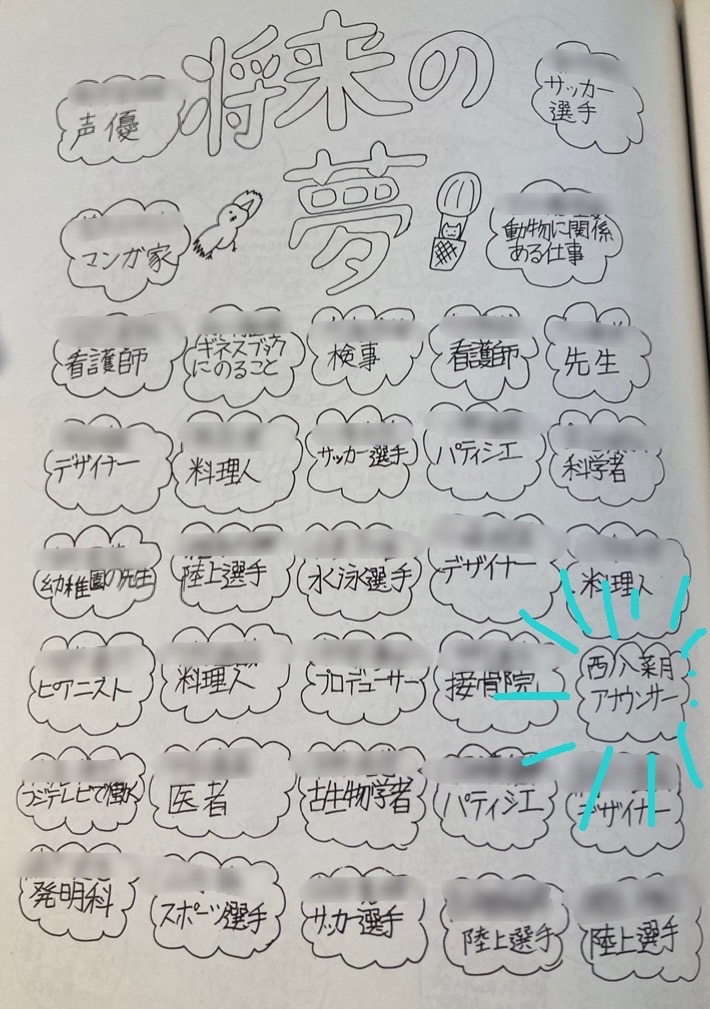 将来の
夢
声優
サッカー
選手
マンガ家
動物に関係
ある仕事
看護師
ギネスブック
にのること
検事
看護師
先生
デザイナー
料理人
サッカー選手
パティシエ
科学者
幼稚園の先生
陸上選手
水泳選手
デザイナー
料理人
ピアニスト
料理人
プロデューサー
接骨院
西ノ入菜月
アナウンサー
フジテレビで働く
医者
古生物学者
パティシエ
デザイナー
発明科
スポーツ選手
サッカー選手
陸上選手
陸上選手